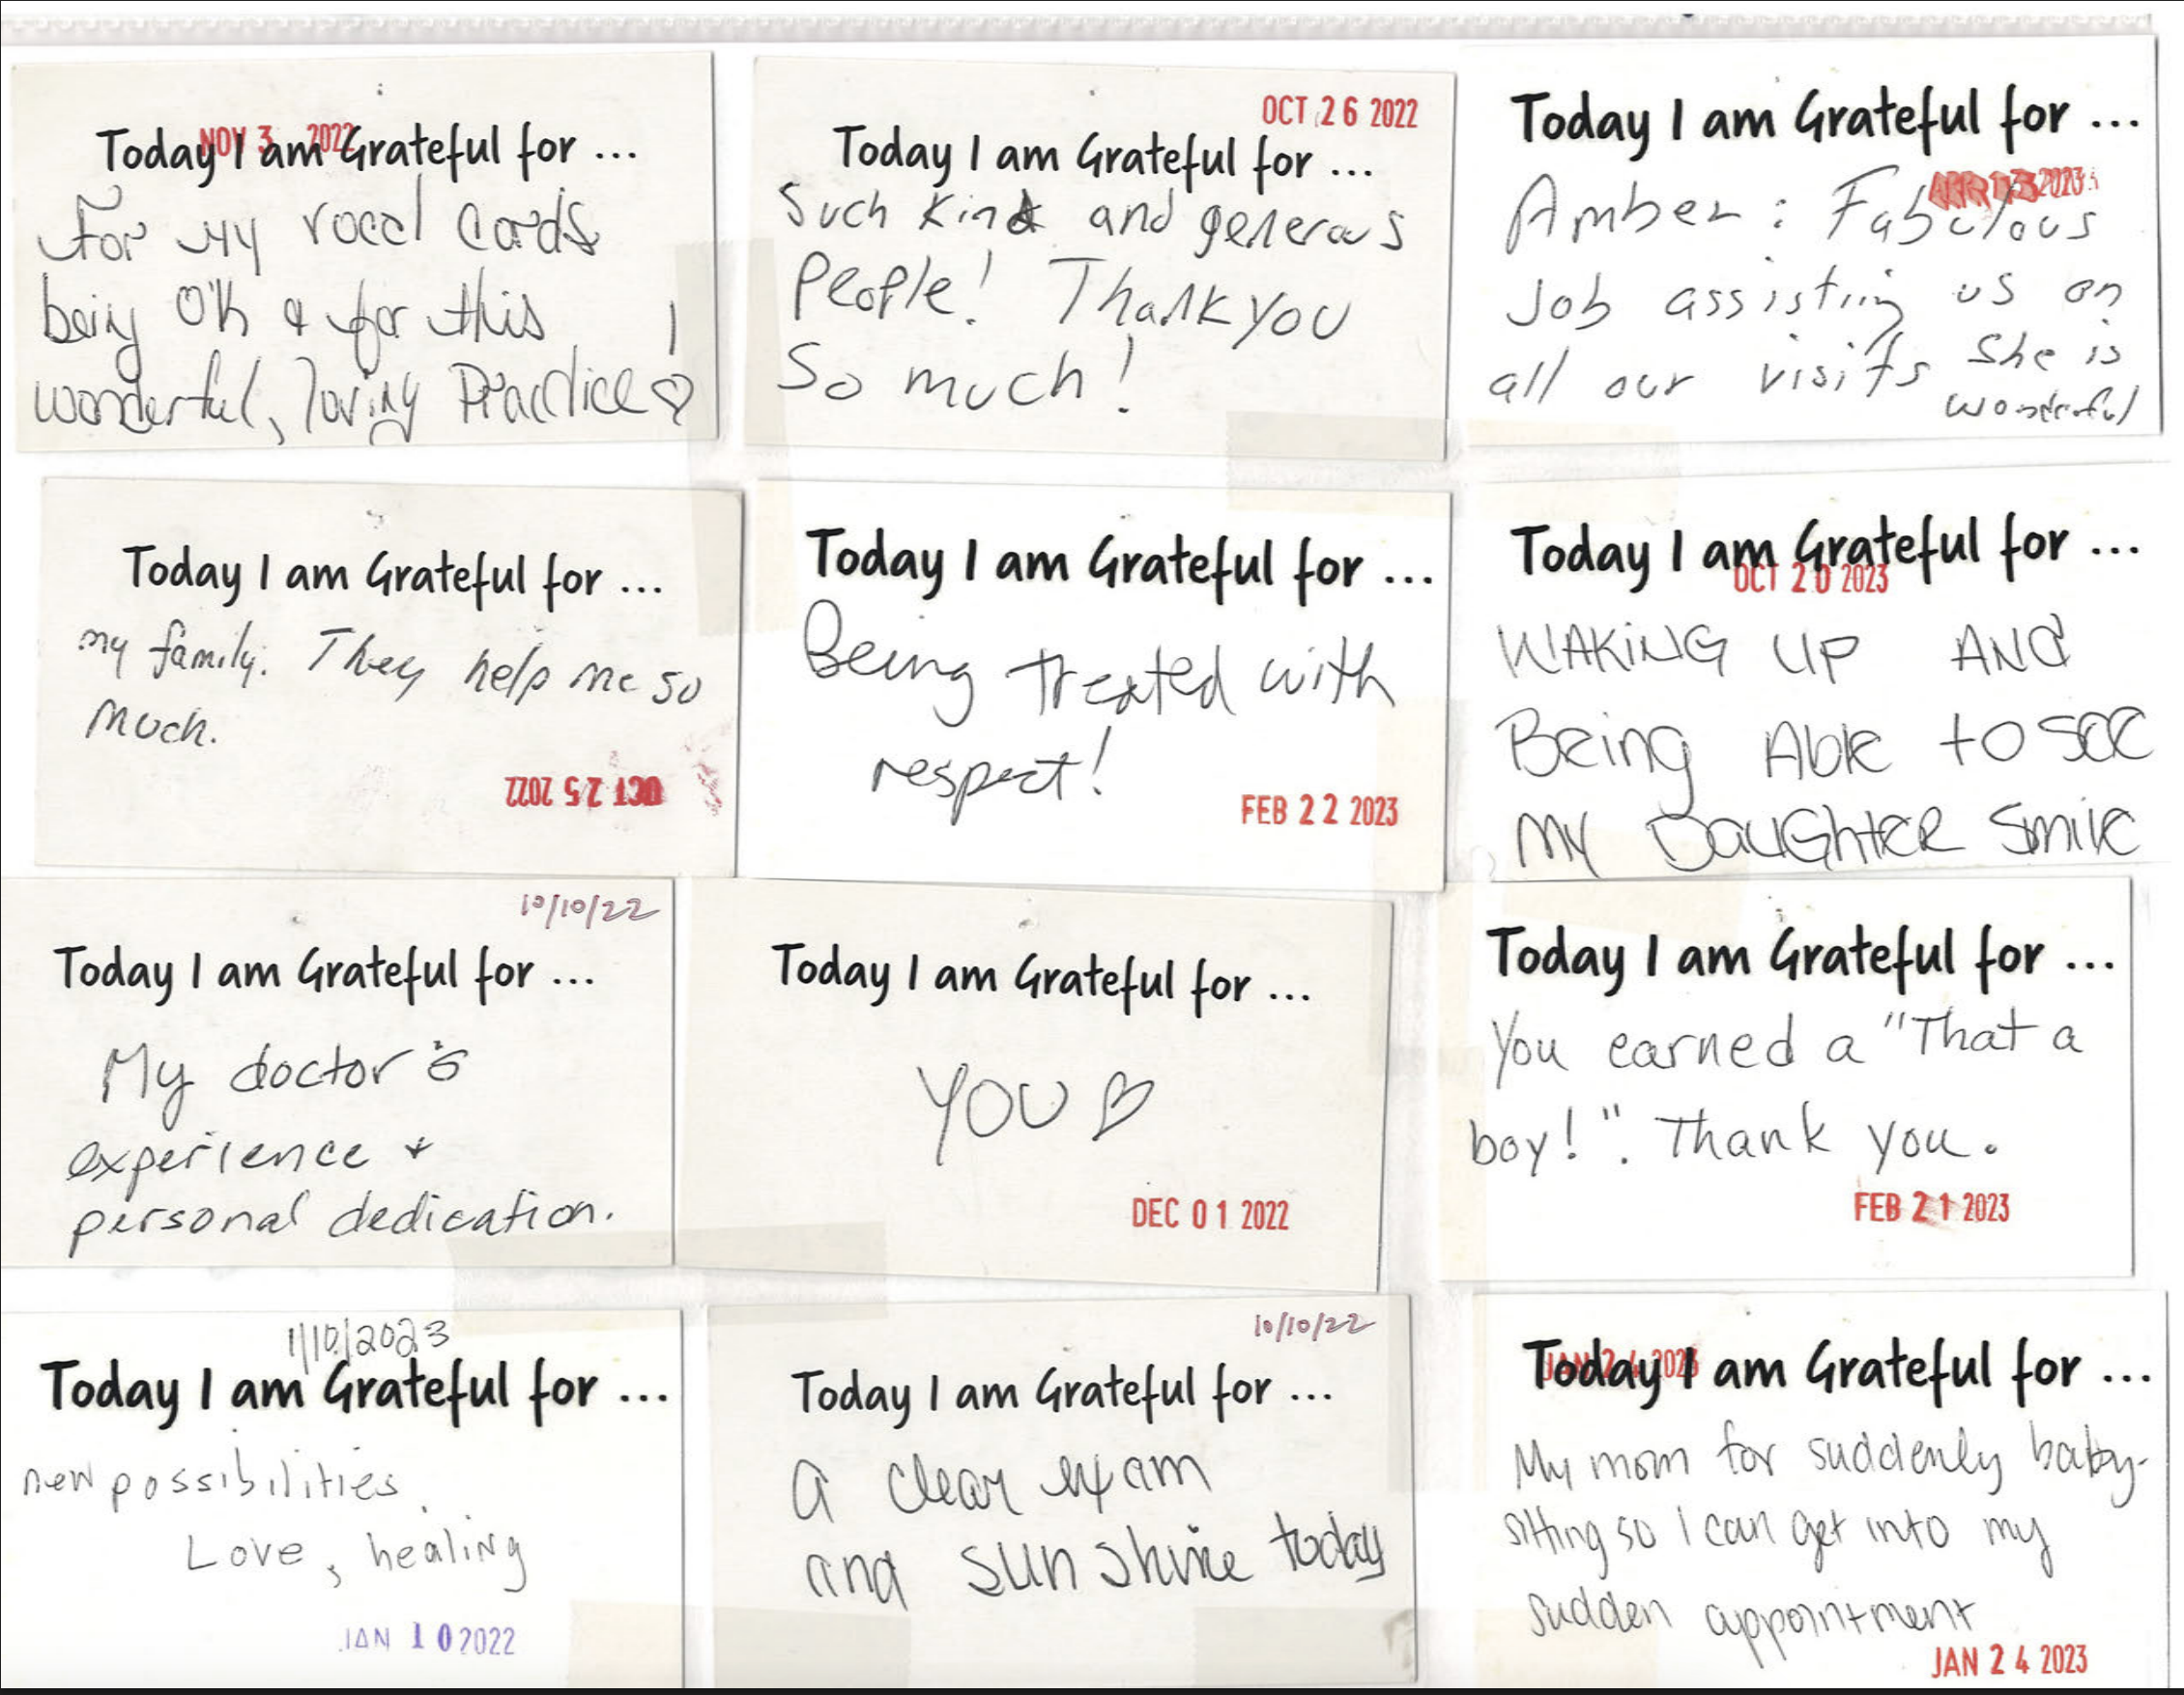 NOV 3 2022
Today I am Grateful for ...
For my vocal cords
being OK & for this
wonderful, loving Practice! ♡
OCT 26 2022
Today I am Grateful for ...
Such kind and generous
People! Thank you
So much!
Today I am Grateful for ...
2023
Amber: Fabulous
Job assisting us on
all our visits She is
wonderful
Today I am Grateful for ...
my family. They help me so
much.
OCT 25 2022
Today I am Grateful for ...
Being treated with
respect!
FEB 22 2023
Today I am Grateful for ...
OCT 20 2023
WAKING UP AND
Being Able to see
MY DAUGhtER Smile
10/10/22
Today I am Grateful for ...
My doctor's
experience +
personal dedication.
Today I am Grateful for ...
YOU ♡
DEC 01 2022
Today I am Grateful for ...
You earned a "That a
boy!". Thank you.
FEB 21 2023
1/10/2023
Today I am Grateful for ...
new possibilities.
Love, healing
JAN 10 2022
10/10/22
Today I am Grateful for ...
a clear exam
and sunshine today
JAN 24 2023
Today I am Grateful for ...
My mom for suddenly baby-
sitting so I can get into my
sudden appointment
JAN 24 2023